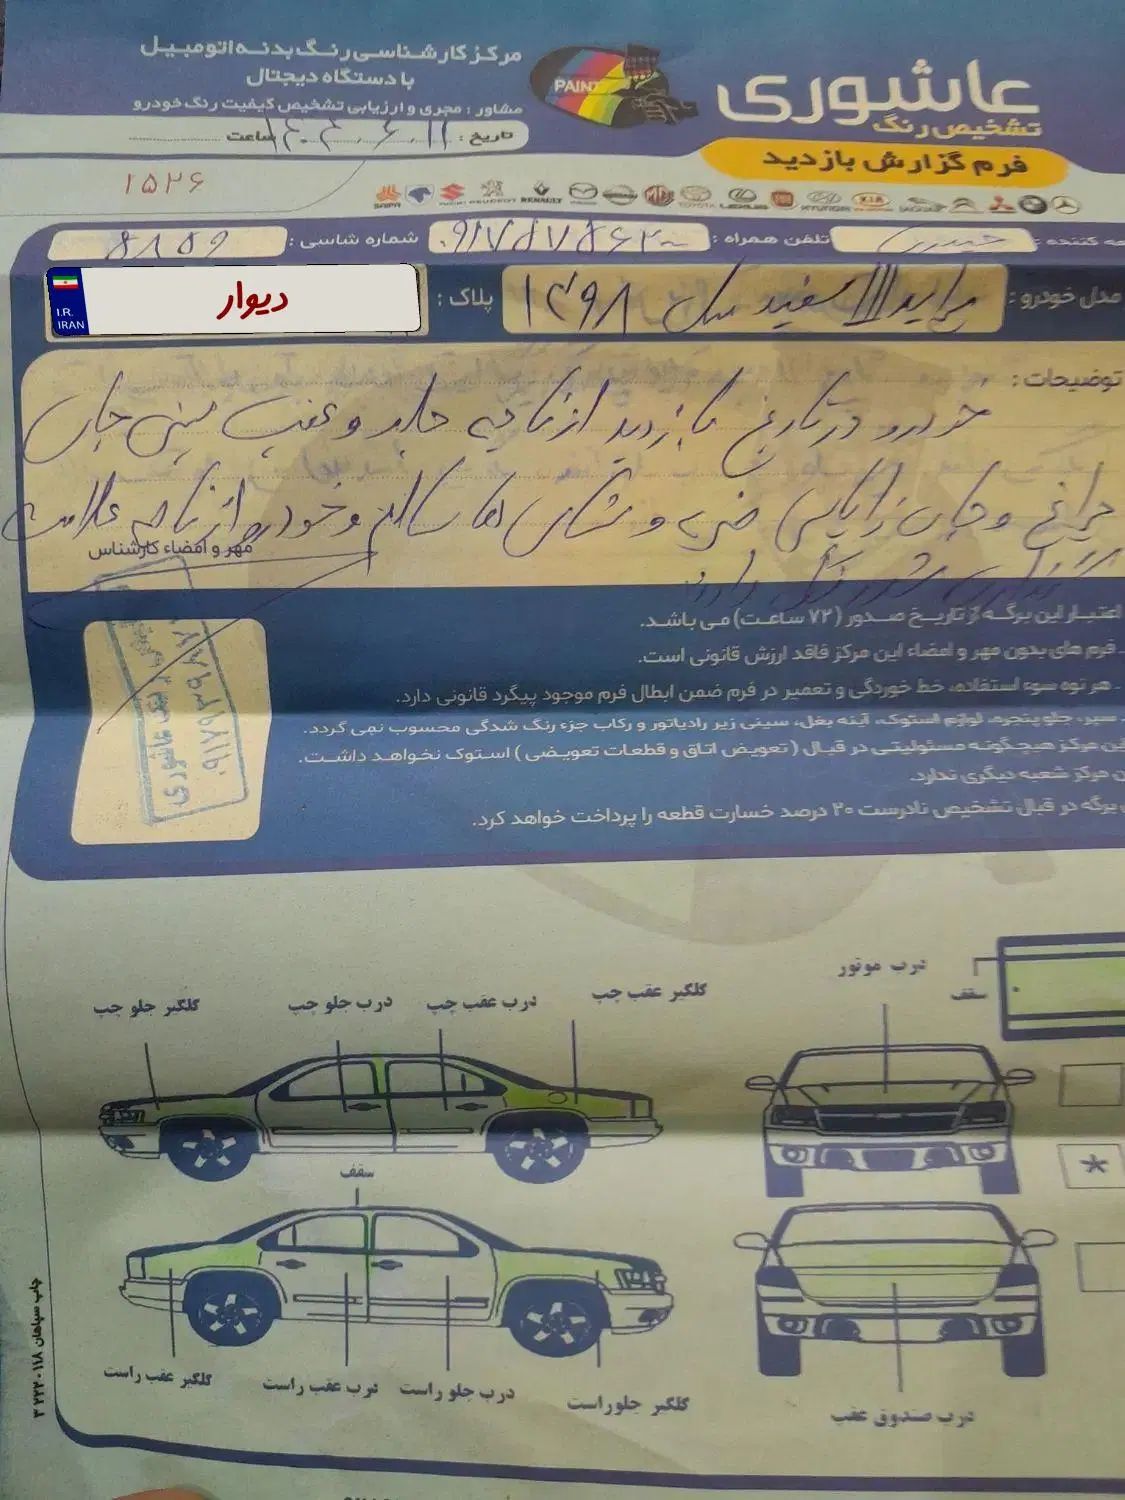 عاشوری
تشخیص رنگ
فرم گزارش بازدید
PAINT
مرکز کارشناسی رنگ بدنه اتومبیل
با دستگاه دیجتال
مشاور : مجری و ارزیابی تشخیص کیفیت رنگ خودرو
تاریخ : ۱۴۰۳.۶.۱۱ ساعت
۱۵۲۶
SAIPA RENAULT MG TOYOTA LEXUS HYUNDAI KIA
تلفن همراه :
شماره شاسی :
مدل خودرو : پراید 111 سفید سال ۱۳۹۸
پلاک :
I.R. IRAN دیوار
توضیحات :
خودرو در تاریخ بازدید از ناحیه جلو و عقب سینی جای
چراغ و جای زاپاس ضربه و شاسی ها سالم و خودرو از ناحیه علامت
گذاری شده رنگ دارد
مهر و امضاء کارشناس
اعتبار این برگه از تاریخ صدور (۷۲ ساعت) می باشد.
فرم های بدون مهر و امضاء این مرکز فاقد ارزش قانونی است.
هر نوه سوء استفاده، خط خوردگی و تعمیر در فرم ضمن ابطال فرم موجود پیگرد قانونی دارد.
سپر، جلو پنجره، لوازم استوک، آینه بغل، سینی زیر رادیاتور و رکاب جزء رنگ شدگی محسوب نمی گردد.
این مرکز هیچگونه مسئولیتی در قبال ( تعویض اتاق و قطعات تعویضی ) استوک نخواهد داشت.
مرکز شعبه دیگری ندارد.
برگه در قبال تشخیص نادرست ۲۰ درصد خسارت قطعه را پرداخت خواهد کرد.
درب موتور
سقف
گلگیر عقب چپ
درب عقب چپ
درب جلو چپ
گلگیر جلو چپ
سقف
*
گلگیر جلو راست
درب جلو راست
درب عقب راست
گلگیر عقب راست
درب صندوق عقب
چاپ سپاهان